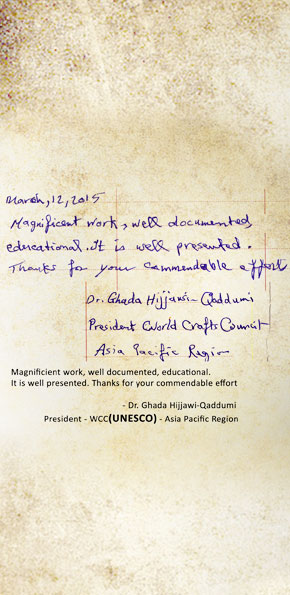 March, 12, 2015
Magnificent work, well documented,
educational. It is well presented.
Thanks for your commendable effort
Dr. Ghada Hijjawi-Qaddumi
President World Crafts Council
Asia Pacific Region
Magnificent work, well documented, educational.
It is well presented. Thanks for your commendable effort
- Dr. Ghada Hijjawi-Qaddumi
President - WCC(UNESCO) - Asia Pacific Region